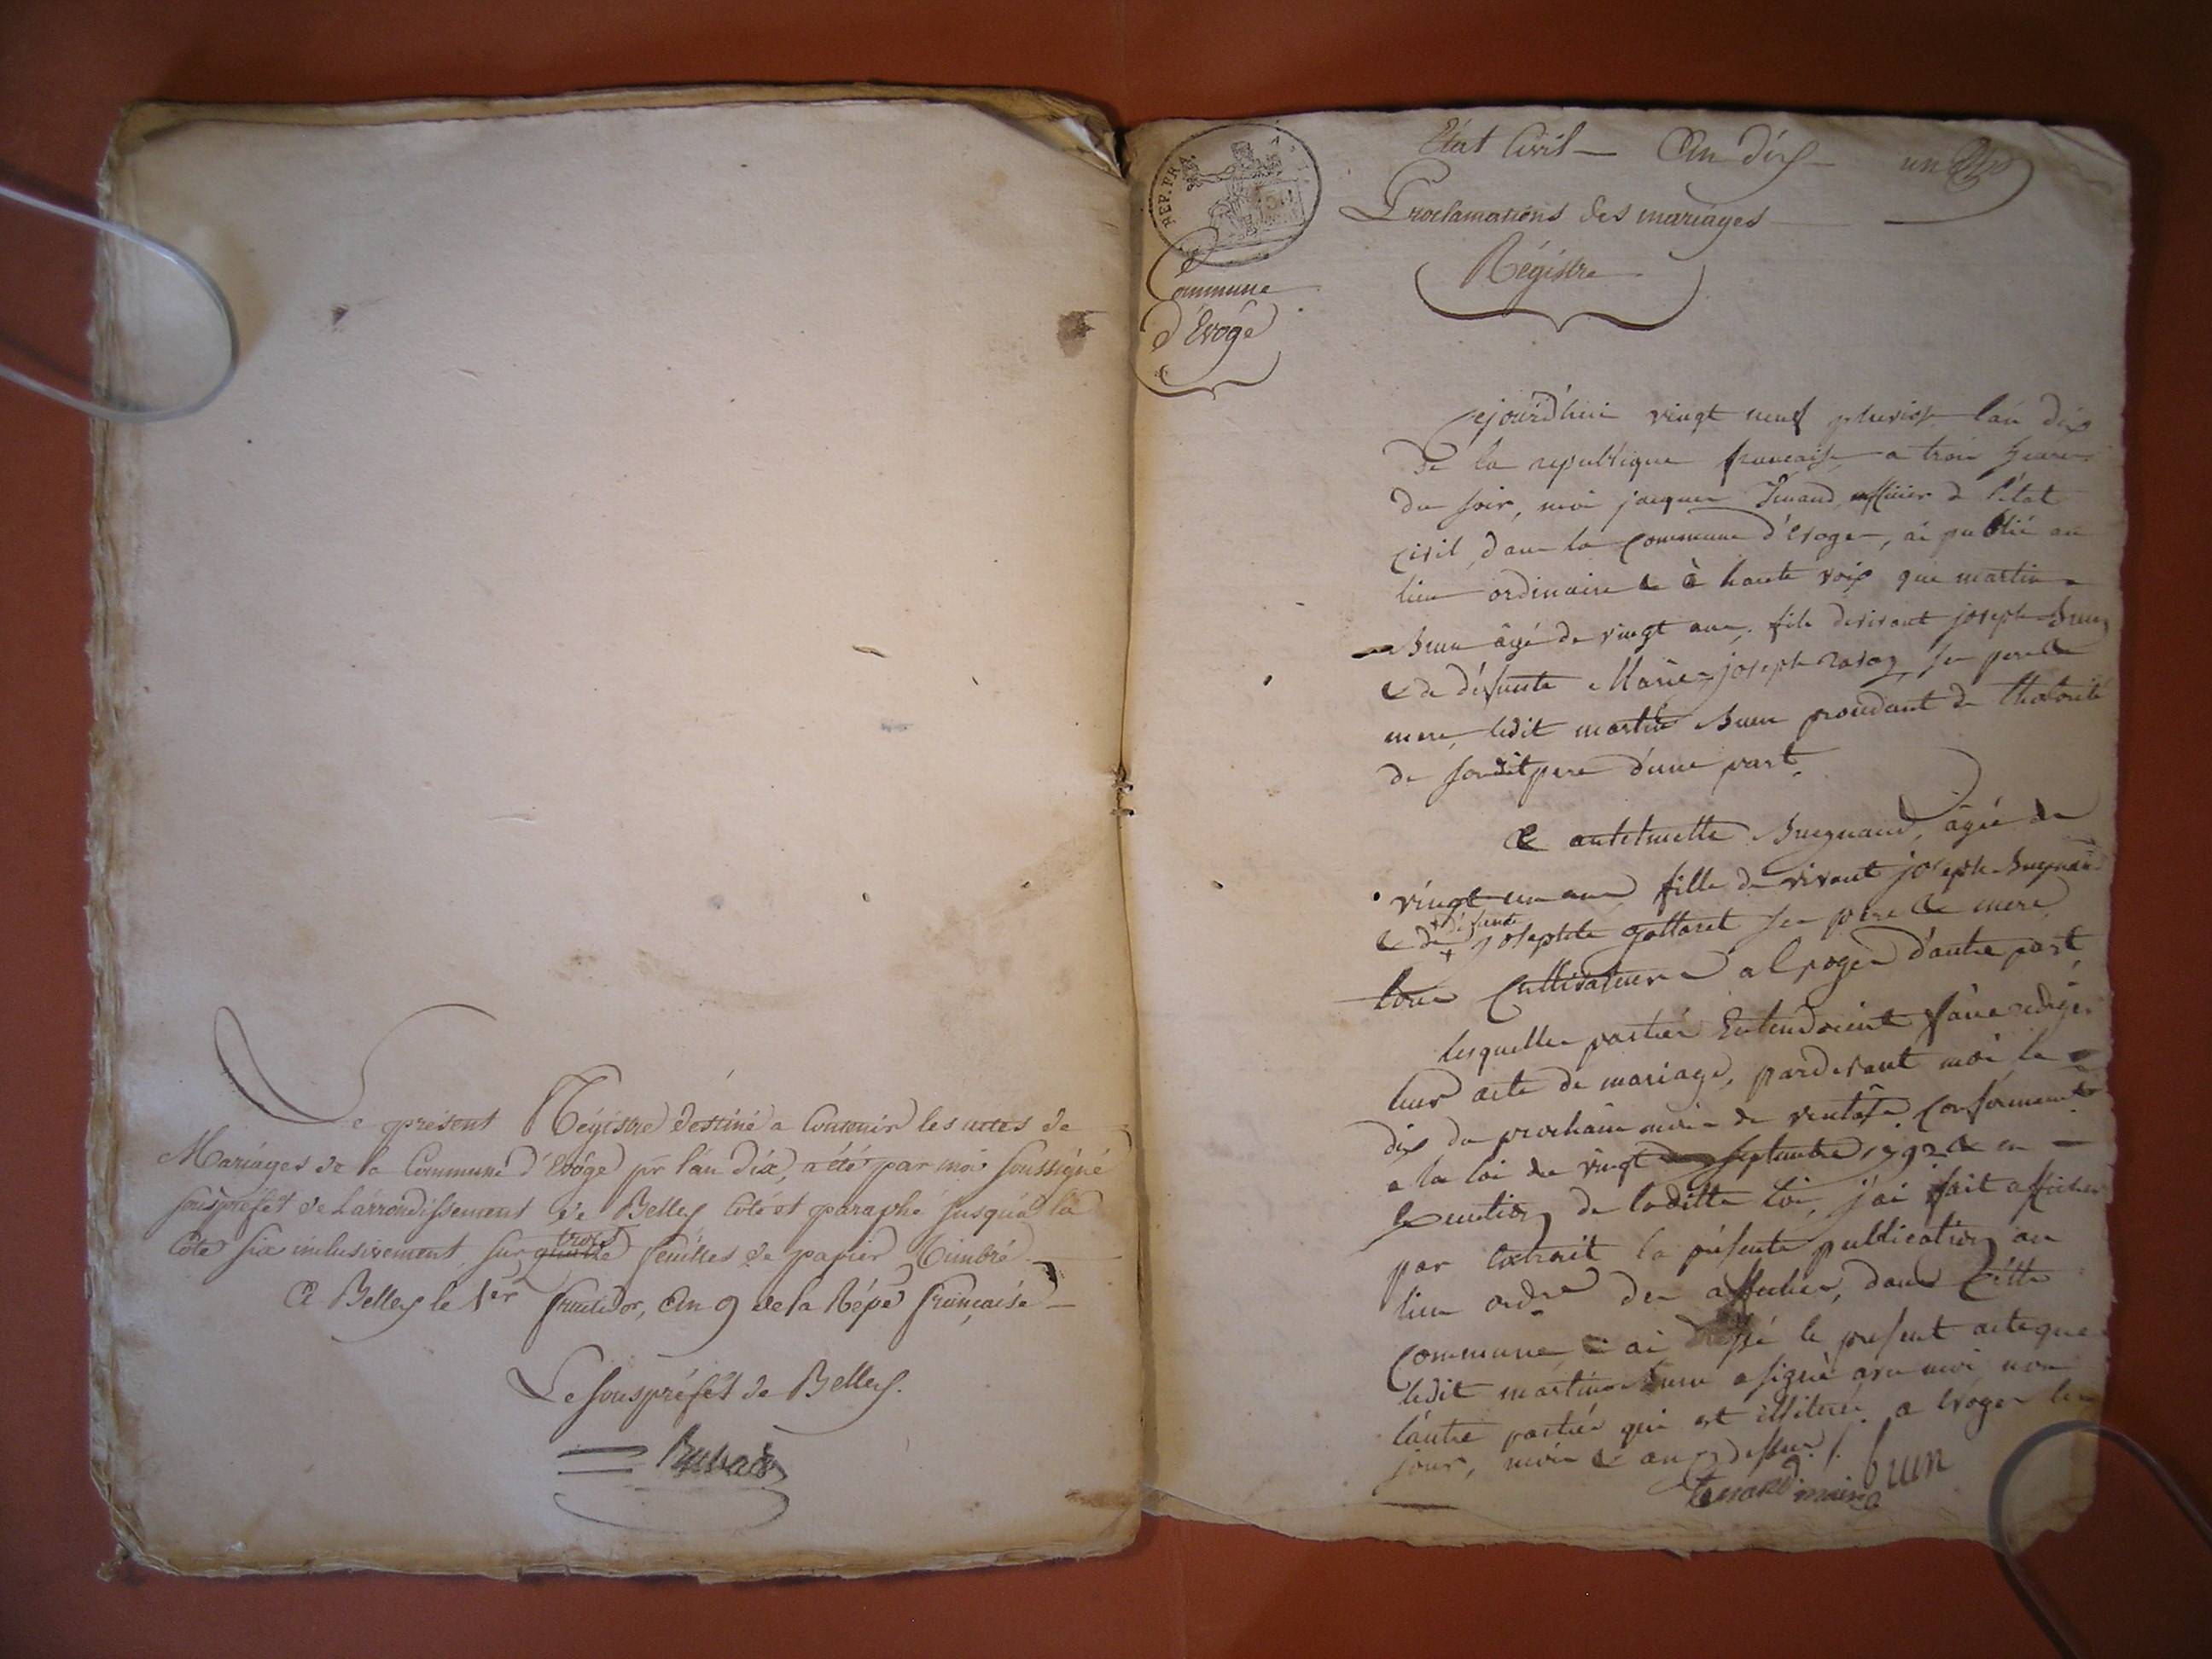 Le présent Régistre destiné a Contenir les actes de
Mariages de la Commune d'Evôge pr l'an dix, a été par moi soussigné
souspréfet de L'arrondissement de Belley coté et paraphé jusqu'à la
côte six inclusivement, sur trois feuilles de papier timbré
A Belley le 1er fructidor, an 9 de la Répe française
Le souspréfet de Belley.
REP. FRA.
Commune
d'Evôge
Etat Civil - An dix
un
Proclamations des mariages
Régistre
Cejourd'hui vingt neuf pluviose l'an dix
de la republique francaise a trois heures
du soir, moi jacques officier de l'état
civil, dans la Commune d'evoges, ai publié au
lieu ordinaire & à haute voix que martin
Brun âgé de vingt ans, fils de vivant joseph Brun
& de défunte Marie joseph ses pere &
mere, ledit martin Brun procedant de
de son dit pere d'une part.
& antelmette Bugnand, âgée de
vingt un ans fille de vivant joseph Bugnand
défunte
& de josephte gottaret ses pere & mere
tous Cultivateurs a d'autre part,
lesquelles parties Entendoient faire rediger
leur acte de mariage, pardevant moi le
dix du prochain mois de ventose Conformement
a la loi du vingt septembre 1792 & en
Execution de laditte Loi, j'ai fait afficher
par Extrait la présente publication au
lieu ordre des affiches, dans Cette
Commune, & ai dressé le present acte que
ledit martin Brun a signé avec moi non
l'autre partie qui est illiterée. a Evoges les
jour, mois & an dessus
brun
maire